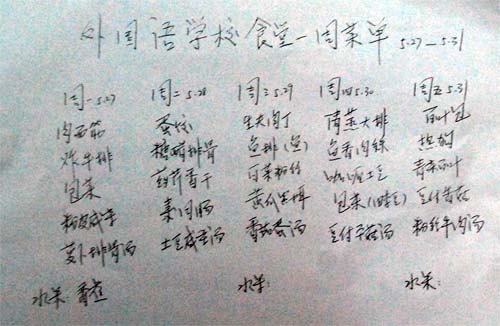 外国语学校食堂一周菜单 5.27—5.31
周一5.27 周二5.28 周三5.29 周四5.30 周五5.31
肉西芹 蚕饺 生炒肉丁 清蒸大排 百叶包
炸牛排 糖醋排骨 鱼排(鱼) 鱼香肉丝
包菜 药芹香干 白菜粉丝 咖喱土豆 青菜百叶
素肉肠 黄瓜 包菜 豆付
萝卜排骨汤 土豆咸蛋汤 番茄蛋汤 豆付平菇汤 粉丝牛肉汤
水果 香蕉 水果: 水果: